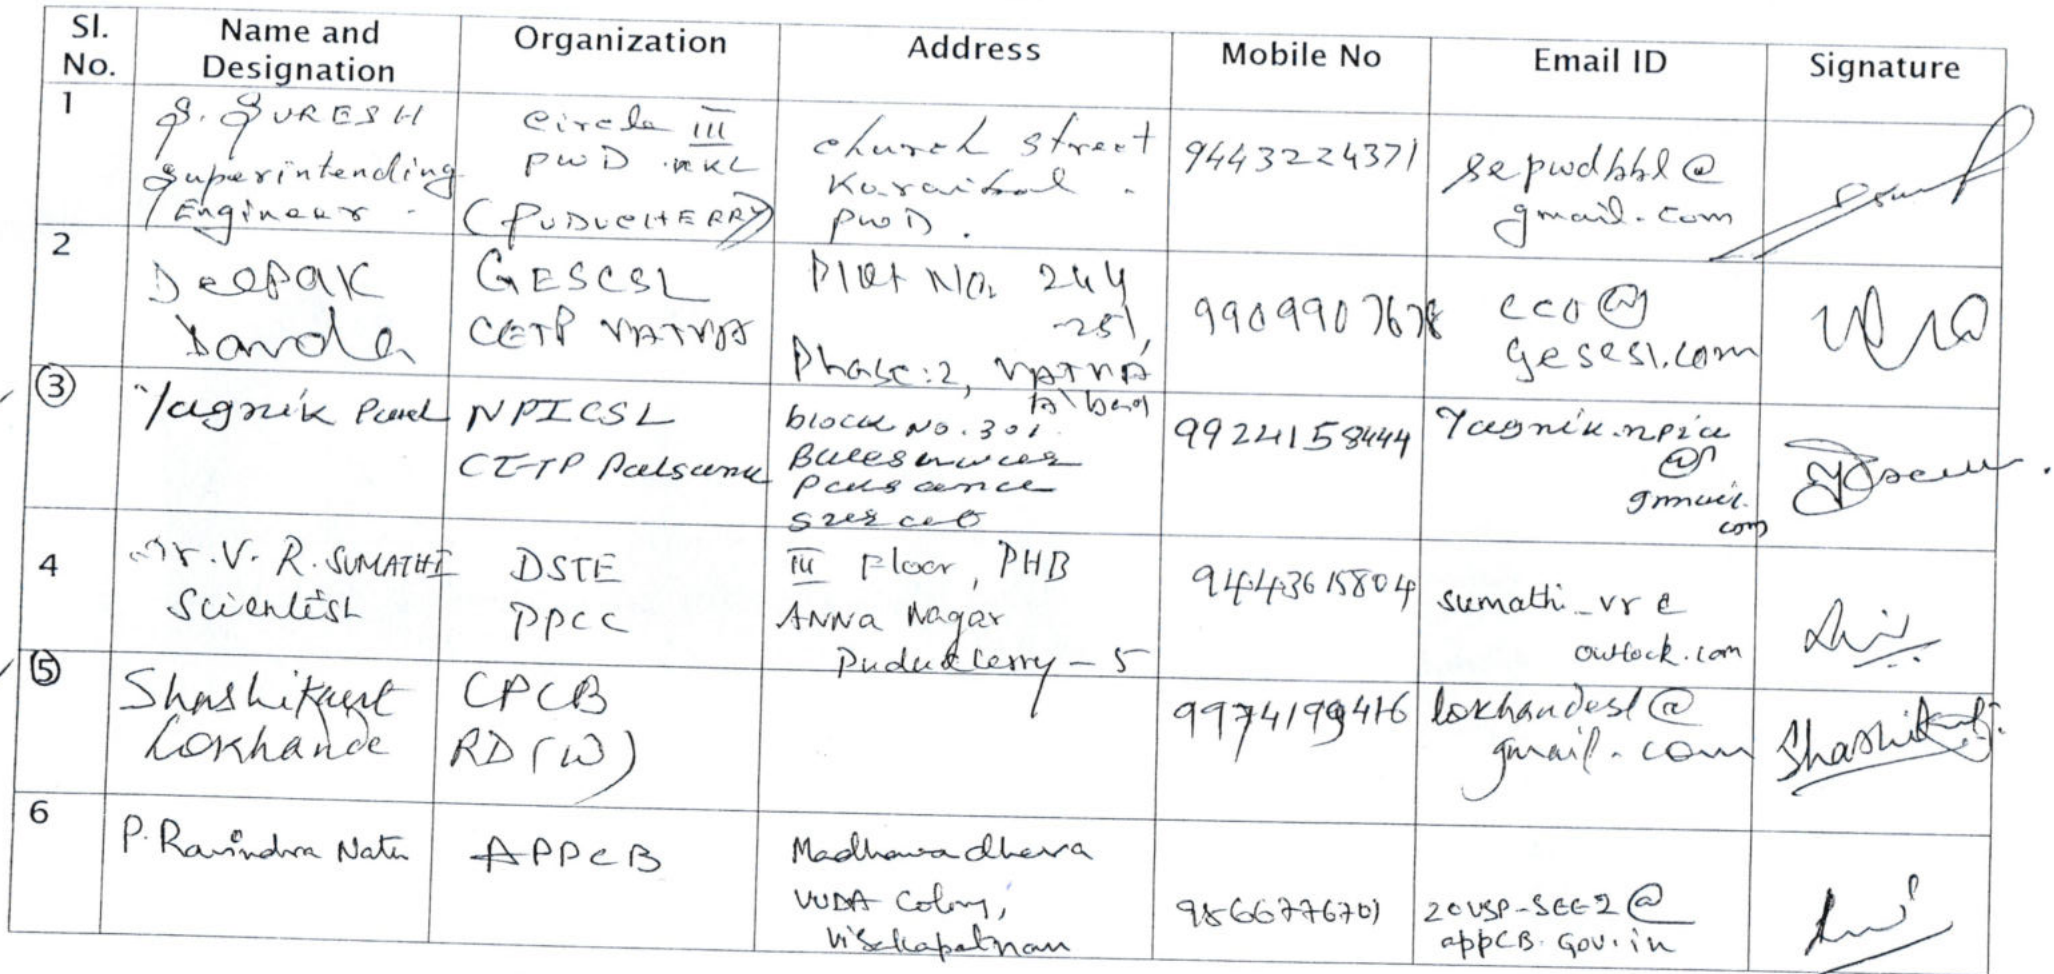 Sl. No. Name and Designation Organization Address Mobile No Email ID Signature
1
S. SURESH
Superintending
Engineer.
Circle III
PWD KKL
(PUDUCHERRY)
church street
Karaikal.
PWD.
9443224371
sepwdkkl@
gmail.com
2
Deepak
Davda
GESCSL
CETP VATVA
Plot No. 244
-251,
Phase:2, VATVA
A'bad
9909907678
ceo@
gescsl.com
3
Yagnik Patel
NPICSL
CETP Palsana
block No. 301
Palsana
9924158444
Yagnik.npia
@
gmail.
com
4
Dr. V. R. SUMATHI
Scientist
DSTE
PPCC
III Floor, PHB
Anna Nagar
Puducherry - 5
9443615804
sumathi_vr@
outlook.com
5
Shashikant
Lokhande
CPCB
RD (W)
9974199416
lokhandesl@
gmail.com
Shashikant
6
P. Ravindra Nath
APPCB
Madhavadhara
VUDA Colony,
Visakhapatnam
9866776701
zovsp-see2@
appCB.gov.in